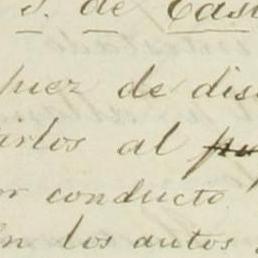 S. de Cast
juez de dis
arlos al
or conducto
En los autos